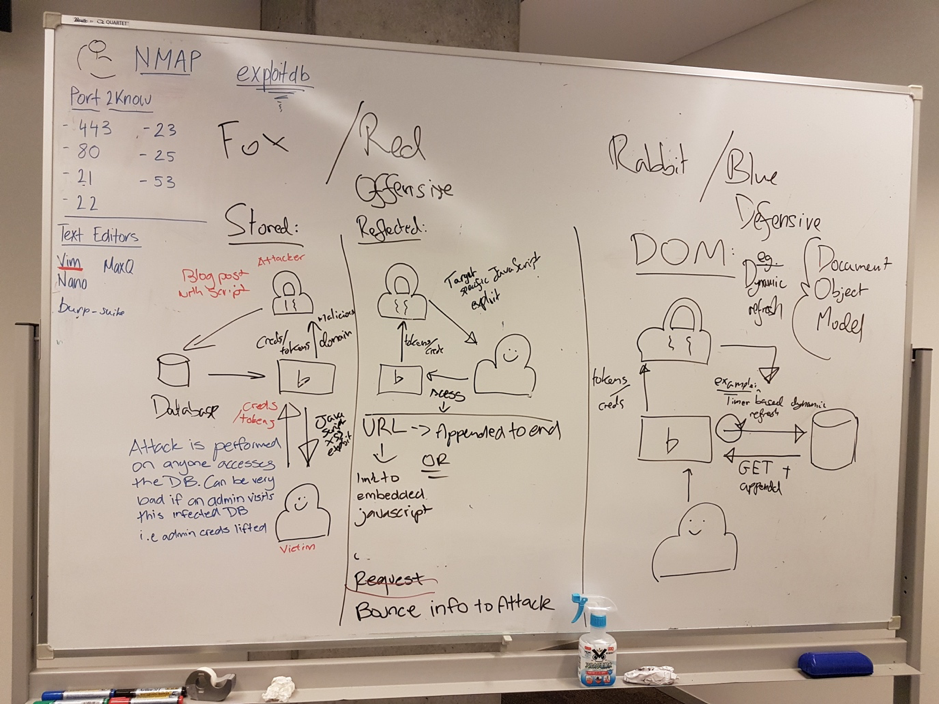 QUARTET
NMAP
exploitdb
Port 2Know
- 443
- 80
- 21
- 22
- 23
- 25
- 53
Text Editors
Vim
MaxQ
Nano
burp-suite
Fox
/Red
Offensive
Rabbit
/Blue
Defensive
Stored:
Attacker
Blog post
with script
malicious
domain
creds/
tokens
b
Database
creds
/tokens
Java
script
XSS
exploit
Victim
Attack is performed
on anyone accesses
the DB. Can be very
bad if an admin visits
this infected DB
i.e admin creds lifted
Reflected:
Target
specific JavaScript
exploit
tokens/creds
b
Access
URL -> Appended to end
OR
link to
embedded
javascript
Request
Bounce info to Attack
DOM:
eg.
Dynamic
refresh
Document
Object
Model
tokens
/
creds
example:
Timer based dynamic
refresh
b
GET +
append